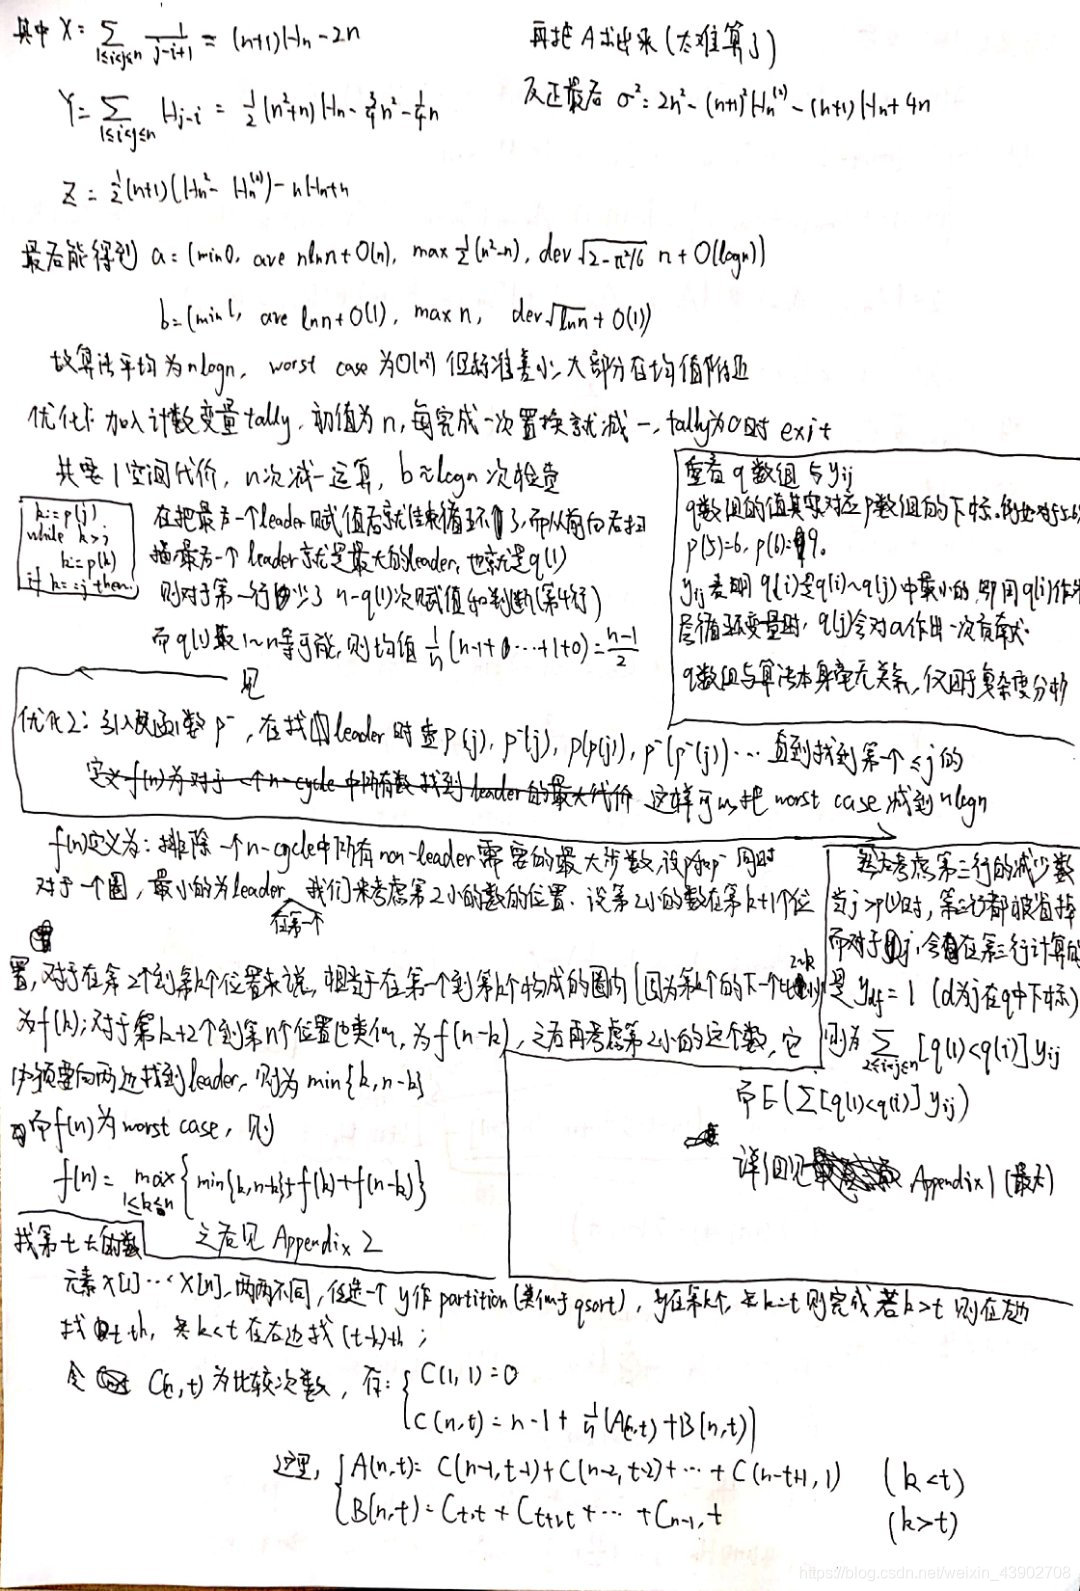 其中 X = ∑_{1≤i<j≤n} 1/(j-i+1) = (n+1)Hn - 2n
再把 A 求出来 (太难算了)
Y = ∑_{1≤i<j≤n} H_{j-i} = 1/2(n²+n)Hn - 3/4n² - 1/4n
反正最后 σ² = 2n² - (n+1)²Hn^{(2)} - (n+1)Hn + 4n
Z = 1/2(n+1)(Hn² - Hn^{(2)}) - nHn + n
最后能得到 a = (min 0, ave nlnn + O(n), max 1/2(n²-n), dev √(2-π²/6) n + O(logn))
b = (min 1, ave lnn + O(1), max n, dev √lnn + O(1))
故算法平均为 nlogn, worst case 为 O(n²) 但标准差小, 大部分在均值附近
优化1: 加入计数变量 tally, 初值为 n, 每完成一次置换就减一, tally为0时 exit
共要 1 空间代价, n次减一运算, b≈logn 次检查
k:=p(j)
while k>j
k:=p(k)
if k==j then
在把最后一个leader赋值后就结束循环了, 而从前向后扫
描最后一个 leader 就是最大的leader, 也就是 q(1)
则对于第一行少了 n-q(1)次赋值和判断(第4行)
而 q(1)取 1~n等可能, 则均值 1/n(n-1+…+1+0) = (n-1)/2
查看 q 数组与 yij
q数组的值其实对应 p数组的下标.
p(5)=6, p(6)=9。
yij 表明 q(i)是q(i)~q(j)中最小的, 即用q(i)作外
层循环变量时, q(j)会对a作出一次贡献
q数组与算法本身毫无关系, 仅用于复杂度分析
见
优化2: 引入反函数 p⁻, 在找leader 时查 p(j), p⁻(j), p(p(j)), p⁻(p⁻(j)) … 直到找到第一个 ≤j 的
定义 f(n)为对于一个 n-cycle 中所有数找到 leader 的最大代价 这样可以把 worst case 减到 nlogn
f(n)定义为: 排除一个n-cycle中所有non-leader需要的最大步数, 设p和p⁻同时
对于一个圈, 最小的为leader, 我们来考虑第2小的数的位置. 设第2小的数在第k+1个位
在第一个
置, 对于在第2个到第k个位置来说, 相当于在第一个到第k个构成的圈内 (因为第k个的下一个比2~k小)
为f(k); 对于第k+2个到第n个位置也类似, 为f(n-k), 之后再考虑第2小的这个数, 它
必须要向两边找到leader, 则为 min{k, n-k}
而f(n)为worst case, 则
f(n) = max_{1≤k≤n} {min{k,n-k} + f(k) + f(n-k)}
之后见 Appendix 2
然后考虑第三行的减少数
当 j>p(1)时, 第三行都被省掉
而对于j, 会在第三行计算的
是 ydj = 1 (d为j在q中下标)
则为 ∑_{2≤i<j≤n} [q(1)<q(i)] yij
而 E(∑[q(1)<q(i)] yij)
详细见 Appendix 1 (最末)
找第t大的数
元素 X[1] … X[n], 两两不同, 任选一个 y作 partition (类似于 qsort), y在第k个, 若 k=t 则完成 若 k>t 则在左边
找 t-th, 若 k<t 在右边找 (t-k)-th;
令 C(n,t) 为比较次数, 有: C(1,1) = 0
C(n,t) = n-1 + 1/n(A(n,t) + B(n,t))
这里, A(n,t) = C(n-1,t-1) + C(n-2,t-2) + … + C(n-t+1,1) (k<t)
B(n,t) = C_{t,t} + C_{t+1,t} + … + C_{n-1,t} (k>t)
https://blog.csdn.net/weixin_43902708